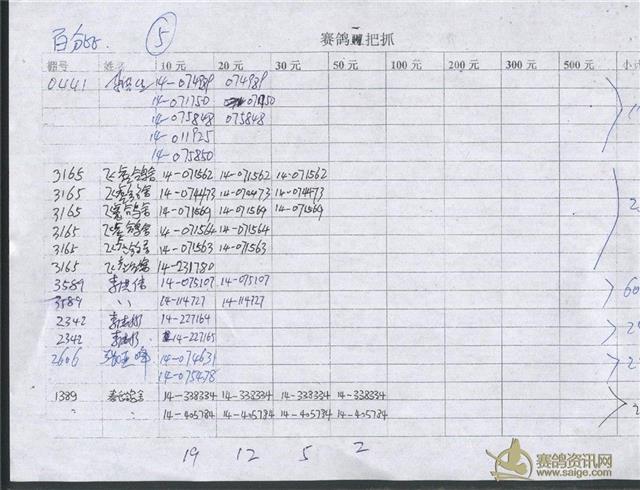 百分比. 5 赛鸽 把抓
棚号 姓名 10 元 20 元 30 元 50 元 100 元 200 元 300 元 500 元 小计
0441 14-074989 074989
14-071750 071750
14-075848 075848
14-011925
14-075850
3165 14-071562 14-071562 14-071562
3165 14-074473 14-074473 14-074473
3165 14-071569 14-071569 14-071569
3165 14-071564 14-071564
3165 14-071563 14-071563
3165 14-231780
3589 14-075107 14-075107
3589 〃 14-114727 14-114727
2342 14-227164
2342 14-227165
2606 14-074631
14-075478
1389 14-338334 14-338334 14-338334 14-338334
〃 〃 14-405784 14-405784 14-405784 14-405784
19 12 5 2
赛鸽资讯网
www.saige.com